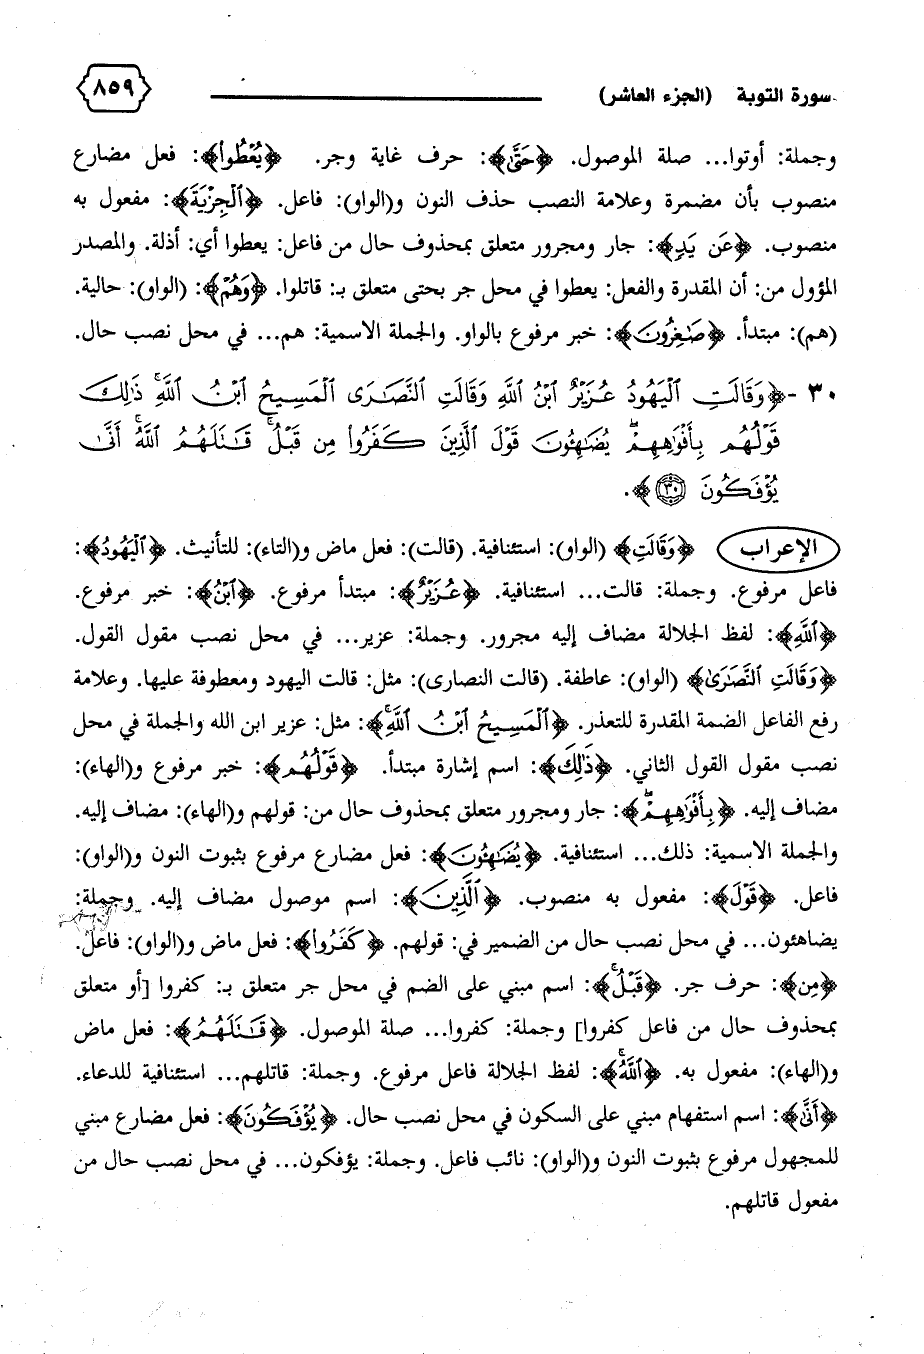 سورة التوبة (الجزء العاشر) ٨٥٩
وجملة: أوتوا... صلة الموصول. ﴿حَتَّىٰ﴾: حرف غاية وجر. ﴿يُعْطُوا﴾: فعل مضارع
منصوب بأن مضمرة وعلامة النصب حذف النون و(الواو): فاعل. ﴿الْجِزْيَةَ﴾: مفعول به
منصوب. ﴿عَن يَدٍ﴾: جار ومجرور متعلق بمحذوف حال من فاعل: يعطوا أي: أذلة. والمصدر
المؤول من: أن المقدرة والفعل: يعطوا في محل جر بحتى متعلق بـ: قاتلوا. ﴿وَهُمْ﴾: (الواو): حالية.
(هم): مبتدأ. ﴿صَٰغِرُونَ﴾: خبر مرفوع بالواو. والجملة الاسمية: هم... في محل نصب حال.
٣٠ -﴿وَقَالَتِ الْيَهُودُ عُزَيْرٌ ابْنُ اللَّهِ وَقَالَتِ النَّصَارَى الْمَسِيحُ ابْنُ اللَّهِ ۖ ذَٰلِكَ
قَوْلُهُم بِأَفْوَٰهِهِمْ ۖ يُضَٰهِـُٔونَ قَوْلَ الَّذِينَ كَفَرُوا مِن قَبْلُ ۚ قَٰتَلَهُمُ اللَّهُ ۚ أَنَّىٰ
يُؤْفَكُونَ ٣٠﴾.
الإعراب ﴿وَقَالَتِ﴾ (الواو): استئنافية. (قالت): فعل ماض و(التاء): للتأنيث. ﴿الْيَهُودُ﴾:
فاعل مرفوع. وجملة: قالت... استئنافية. ﴿عُزَيْرٌ﴾: مبتدأ مرفوع. ﴿ابْنُ﴾: خبر مرفوع.
﴿اللَّهِ﴾: لفظ الجلالة مضاف إليه مجرور. وجملة: عزير... في محل نصب مقول القول.
﴿وَقَالَتِ النَّصَٰرَىٰ﴾ (الواو): عاطفة. (قالت النصارى): مثل: قالت اليهود ومعطوفة عليها. وعلامة
رفع الفاعل الضمة المقدرة للتعذر. ﴿الْمَسِيحُ ابْنُ اللَّهِ ۖ﴾: مثل: عزير ابن الله والجملة في محل
نصب مقول القول الثاني. ﴿ذَٰلِكَ﴾: اسم إشارة مبتدأ. ﴿قَوْلُهُم﴾: خبر مرفوع و(الهاء):
مضاف إليه. ﴿بِأَفْوَٰهِهِمْ ۖ﴾: جار ومجرور متعلق بمحذوف حال من: قولهم و(الهاء): مضاف إليه.
والجملة الاسمية: ذلك... استئنافية. ﴿يُضَٰهِـُٔونَ﴾: فعل مضارع مرفوع بثبوت النون و(الواو):
فاعل. ﴿قَوْلَ﴾: مفعول به منصوب. ﴿الَّذِينَ﴾: اسم موصول مضاف إليه. وجملة:
يضاهئون... في محل نصب حال من الضمير في: قولهم. ﴿كَفَرُوا﴾: فعل ماض و(الواو): فاعل.
﴿مِن﴾: حرف جر. ﴿قَبْلُ ۚ﴾: اسم مبني على الضم في محل جر متعلق بـ: كفروا [أو متعلق
بمحذوف حال من فاعل كفروا] وجملة: كفروا... صلة الموصول. ﴿قَٰتَلَهُمُ﴾: فعل ماض
و(الهاء): مفعول به. ﴿اللَّهُ ۚ﴾: لفظ الجلالة فاعل مرفوع. وجملة: قاتلهم... استئنافية للدعاء.
﴿أَنَّىٰ﴾: اسم استفهام مبني على السكون في محل نصب حال. ﴿يُؤْفَكُونَ﴾: فعل مضارع مبني
للمجهول مرفوع بثبوت النون و(الواو): نائب فاعل. وجملة: يؤفكون... في محل نصب حال من
مفعول قاتلهم.